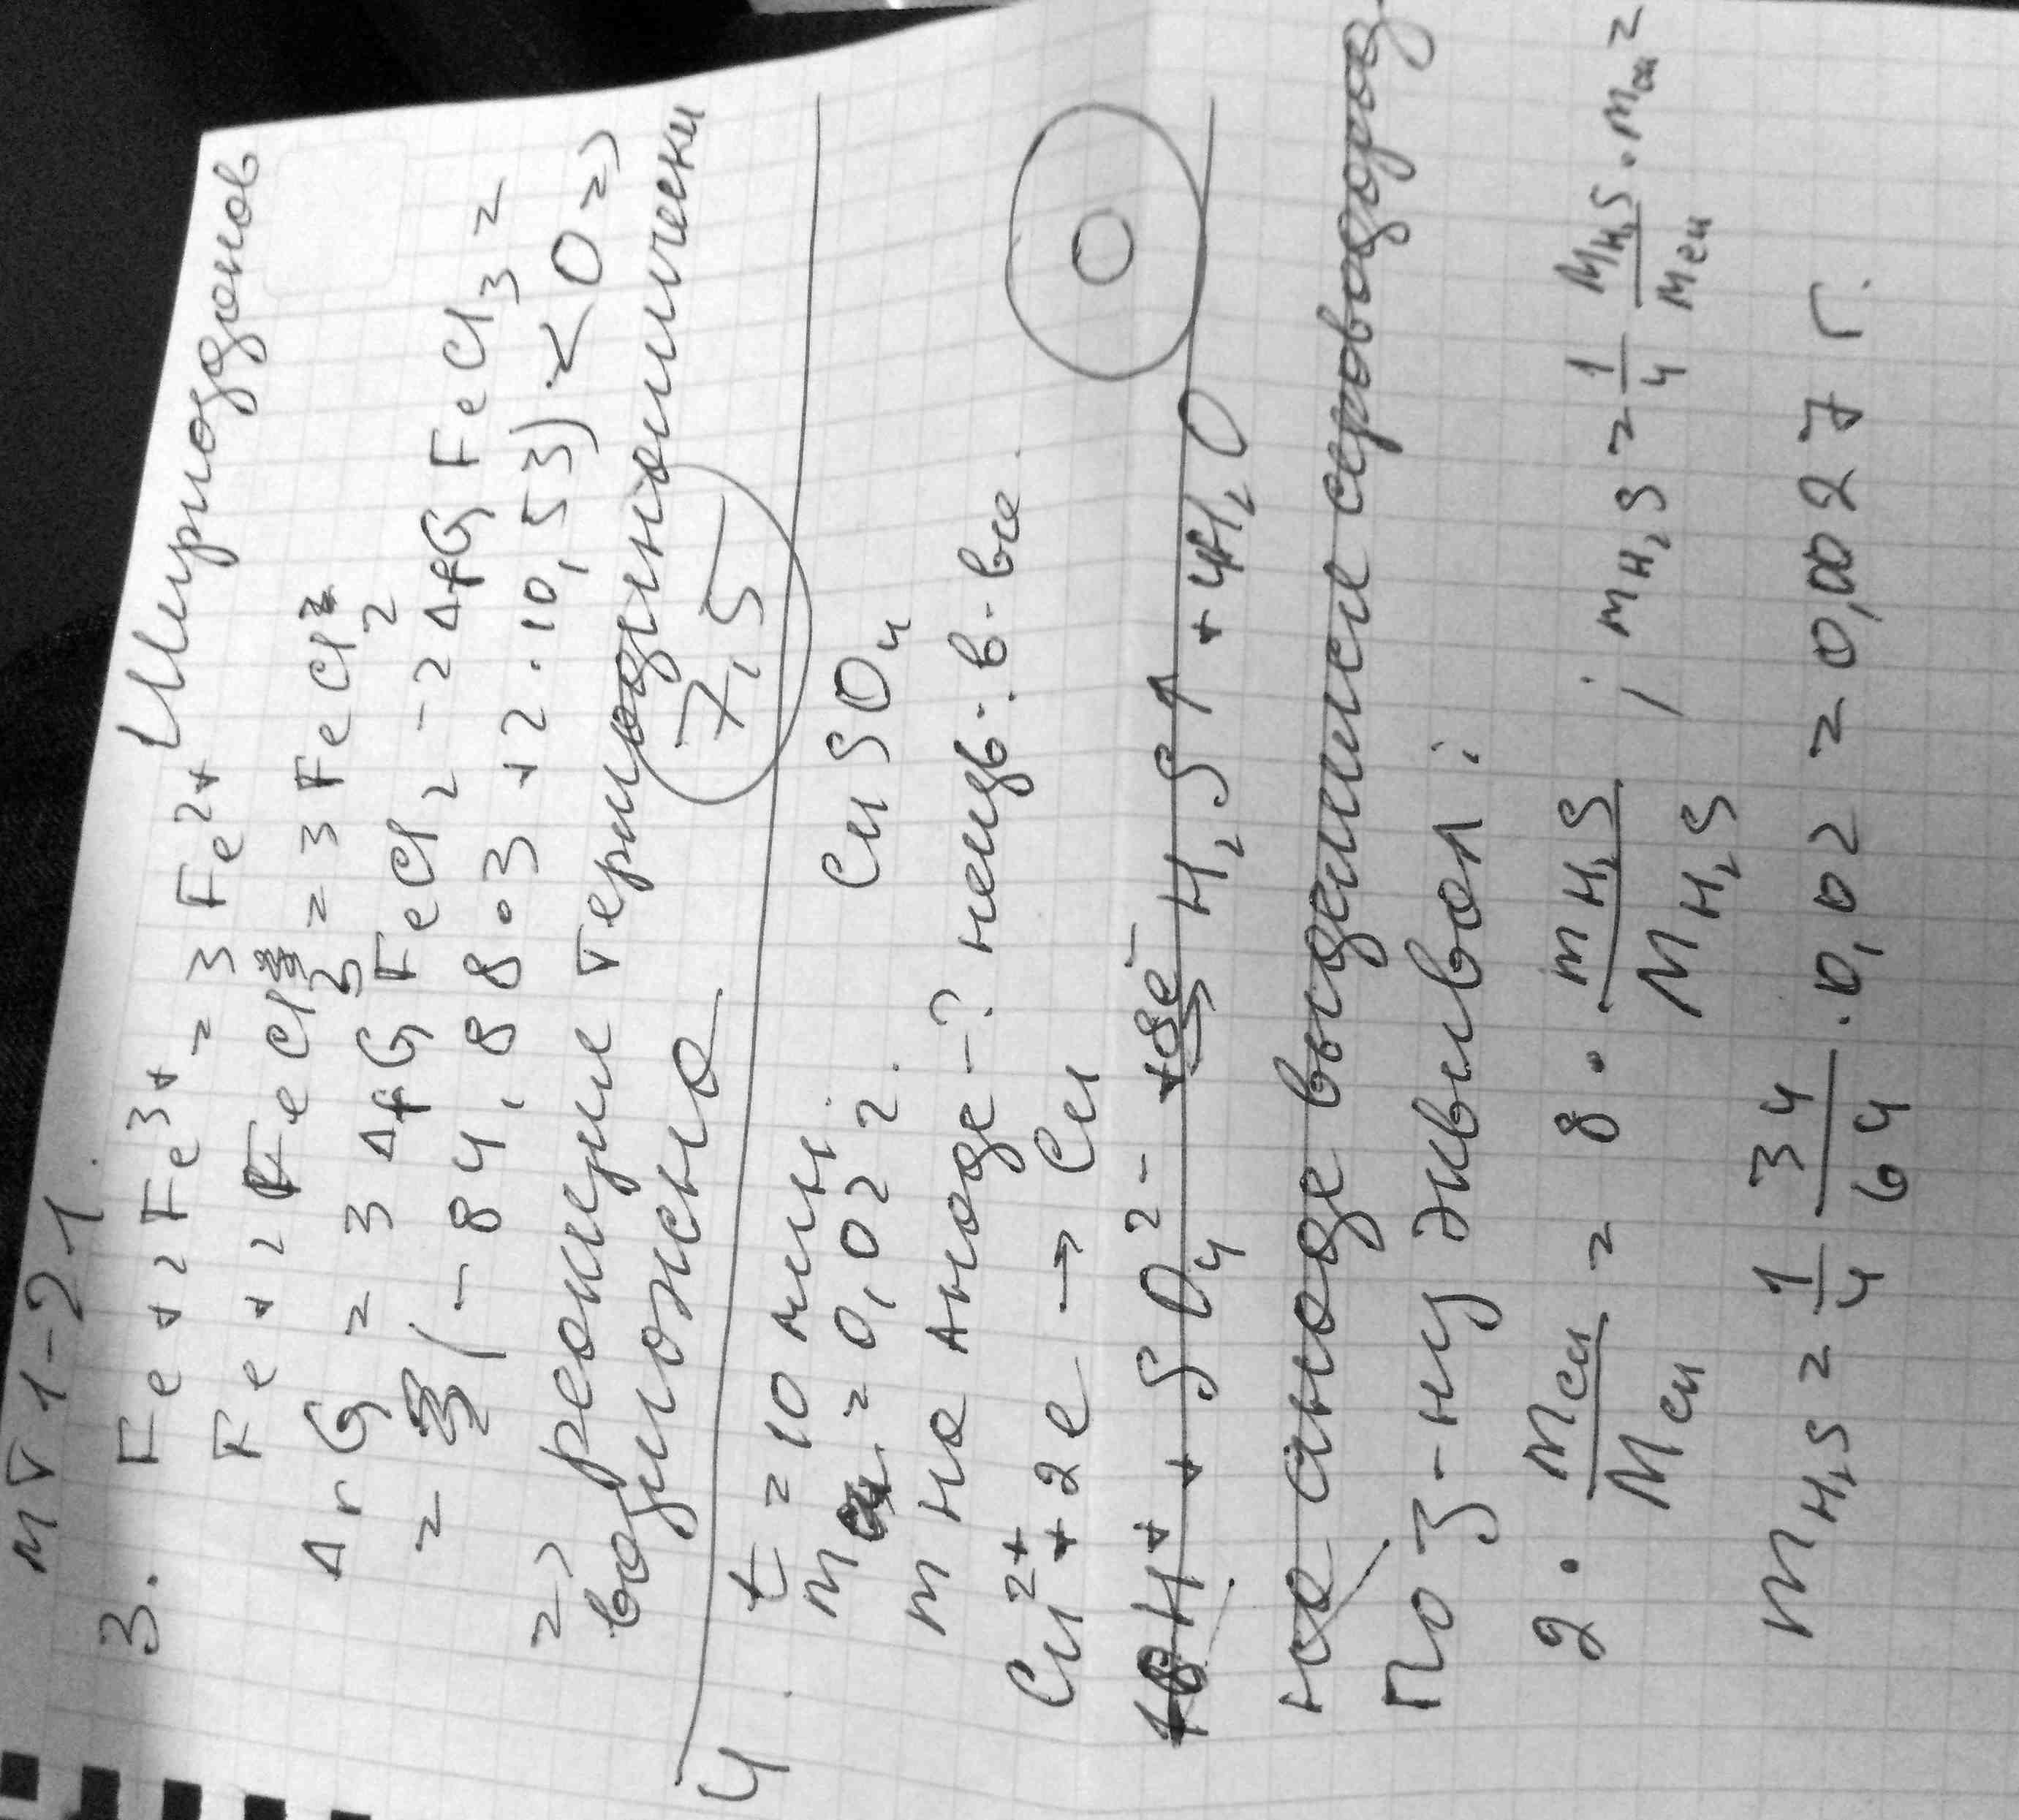 МТ 1-21
Мириоздонов
3. Fe + 2Fe³⁺ = 3Fe²⁺
Fe + 2FeCl₃ = 3FeCl₂
ΔrG = 3 ΔfG FeCl₂ - 2 ΔfG FeCl₃ =
= (-84,88·3 + 2·10,53) < 0 =>
=> реакция термодиномически
возможно
7,5
4. t = 10 мин. CuSO₄
mcu = 0,02 г.
m на аноде -? неизв. в-ва.
Cu²⁺ + 2e → Cu
0
H⁺ + SO₄²⁻ +8e⁻ → H₂S↑ + 4H₂O
на аноде выделился сероводород
По з-ну эквивал:
2 · mcu/Mcu = 8 · mH₂S/MH₂S ; mH₂S = 1/4 MH₂S/Mcu · mcu =
mH₂S = 1/4 34/64 · 0,02 = 0,0027 г.